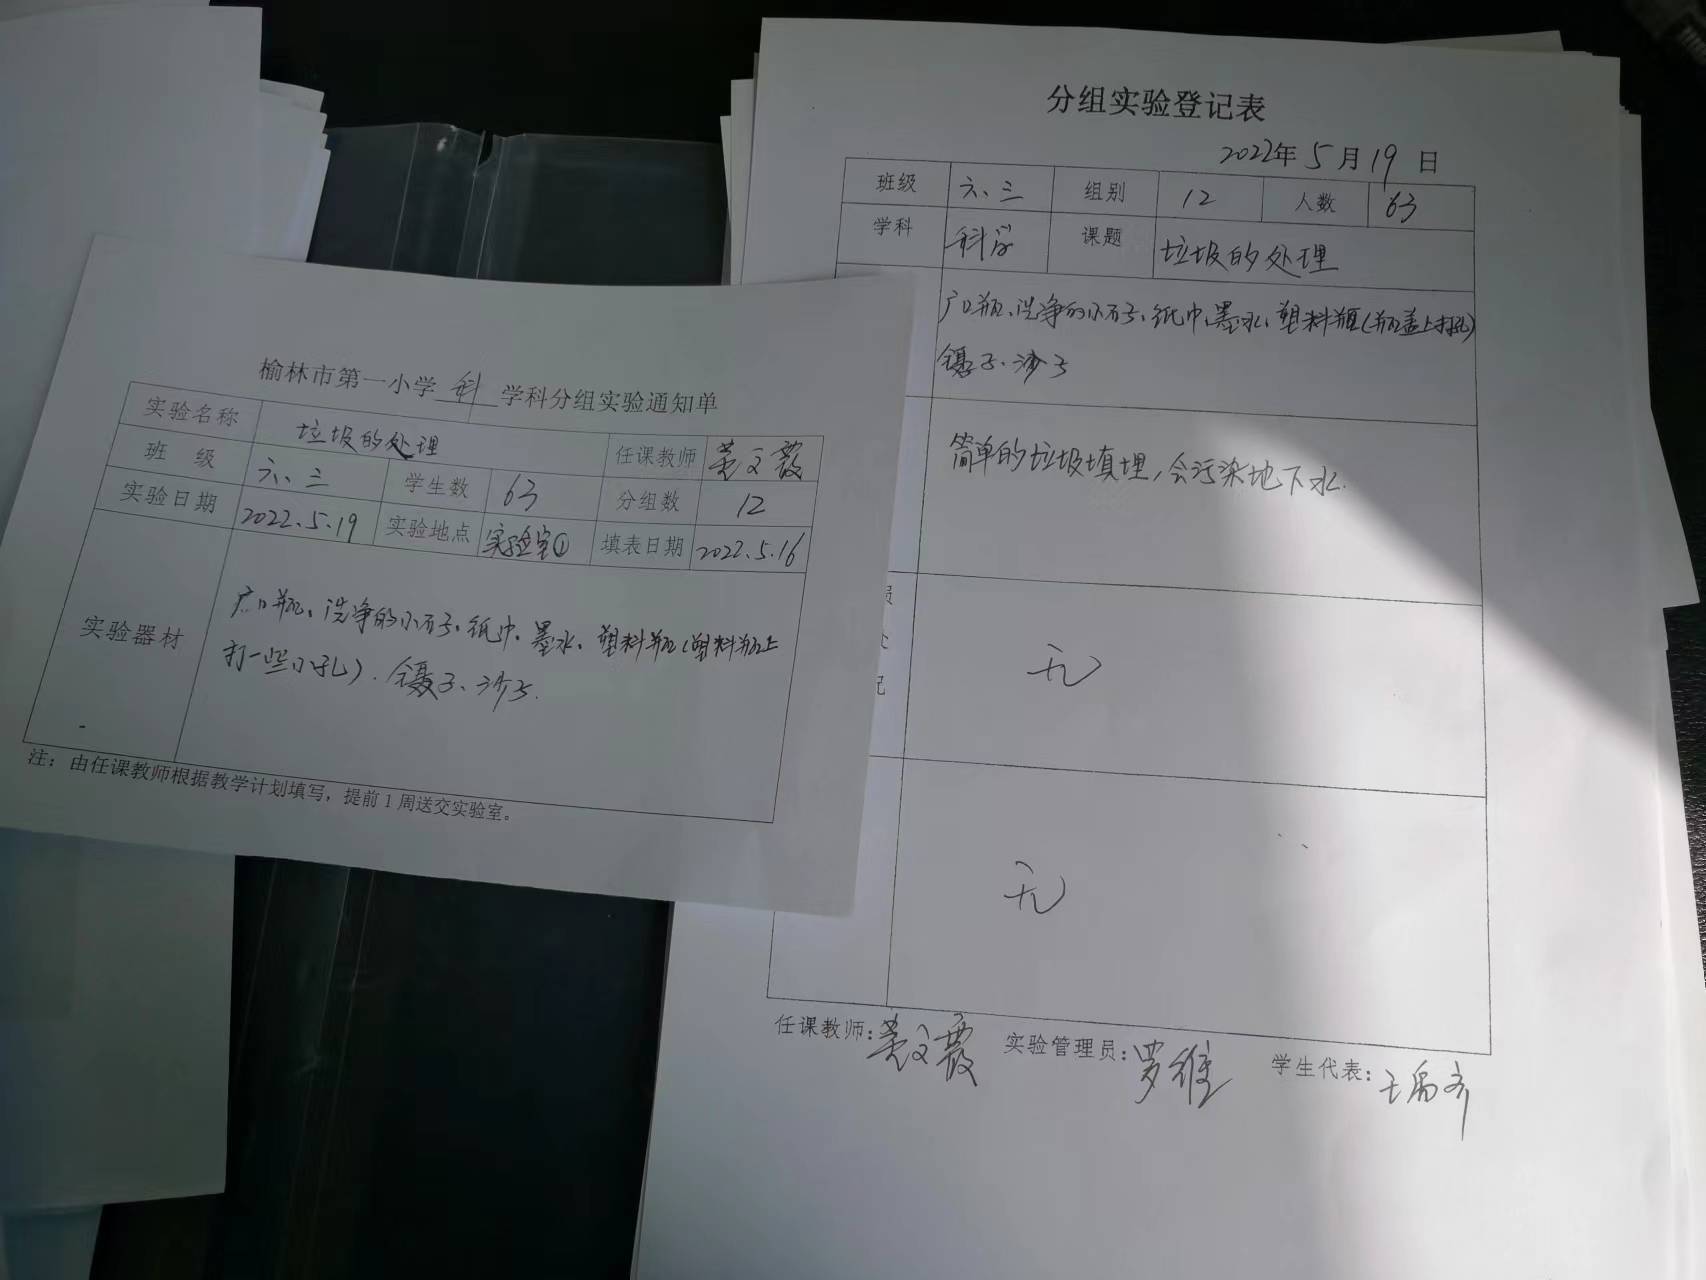 榆林市第一小学 科 学科分组实验通知单
实验名称 垃圾的处理 任课教师 姜文霞
班 级 六、三 学生数 63 分组数 12
实验日期 2022.5.19 实验地点 实验室① 填表日期 2022.5.16
实验器材
广口瓶、洗净的小石子、纸巾、墨水、塑料瓶(塑料瓶上
打一些小孔)、镊子、沙子.
注：由任课教师根据教学计划填写，提前1周送交实验室。
分组实验登记表
2022年 5 月 19 日
班级 六、三 组别 12 人数 63
学科 科学 课题 垃圾的处理
广口瓶、洗净的小石子、纸巾、墨水、塑料瓶(瓶盖上打孔)
镊子、沙子
简单的垃圾填埋，会污染地下水.
无
无
任课教师：姜文霞 实验管理员：罗维 学生代表：